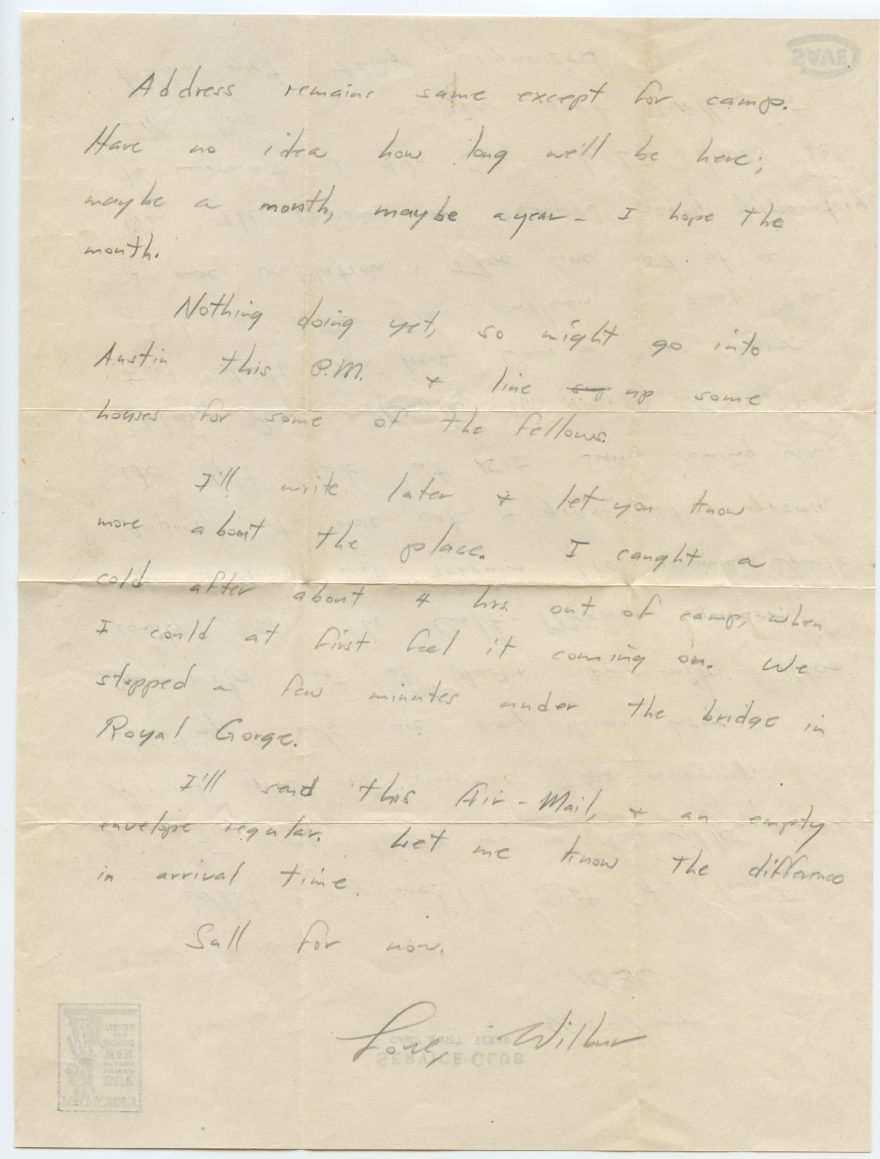 SAVE
Address remains same except for camp.
Have no idea how long we'll be here;
maybe a month, maybe a year - I hope the
month.
Nothing doing yet, so might go into
Austin this P.M. + line up some
houses for some of the fellows.
I'll write later + let you know
more about the place. I caught a
cold after about 4 hrs. out of camp, when
I could at first feel it coming on. We
stopped a few minutes under the bridge in
Royal Gorge.
I'll send this Air-Mail, + an empty
envelope regular. Let me know the difference
in arrival time.
S'all for now.
Love, Wilbur
CAMP SWIFT TEXAS
SERVICE CLUB